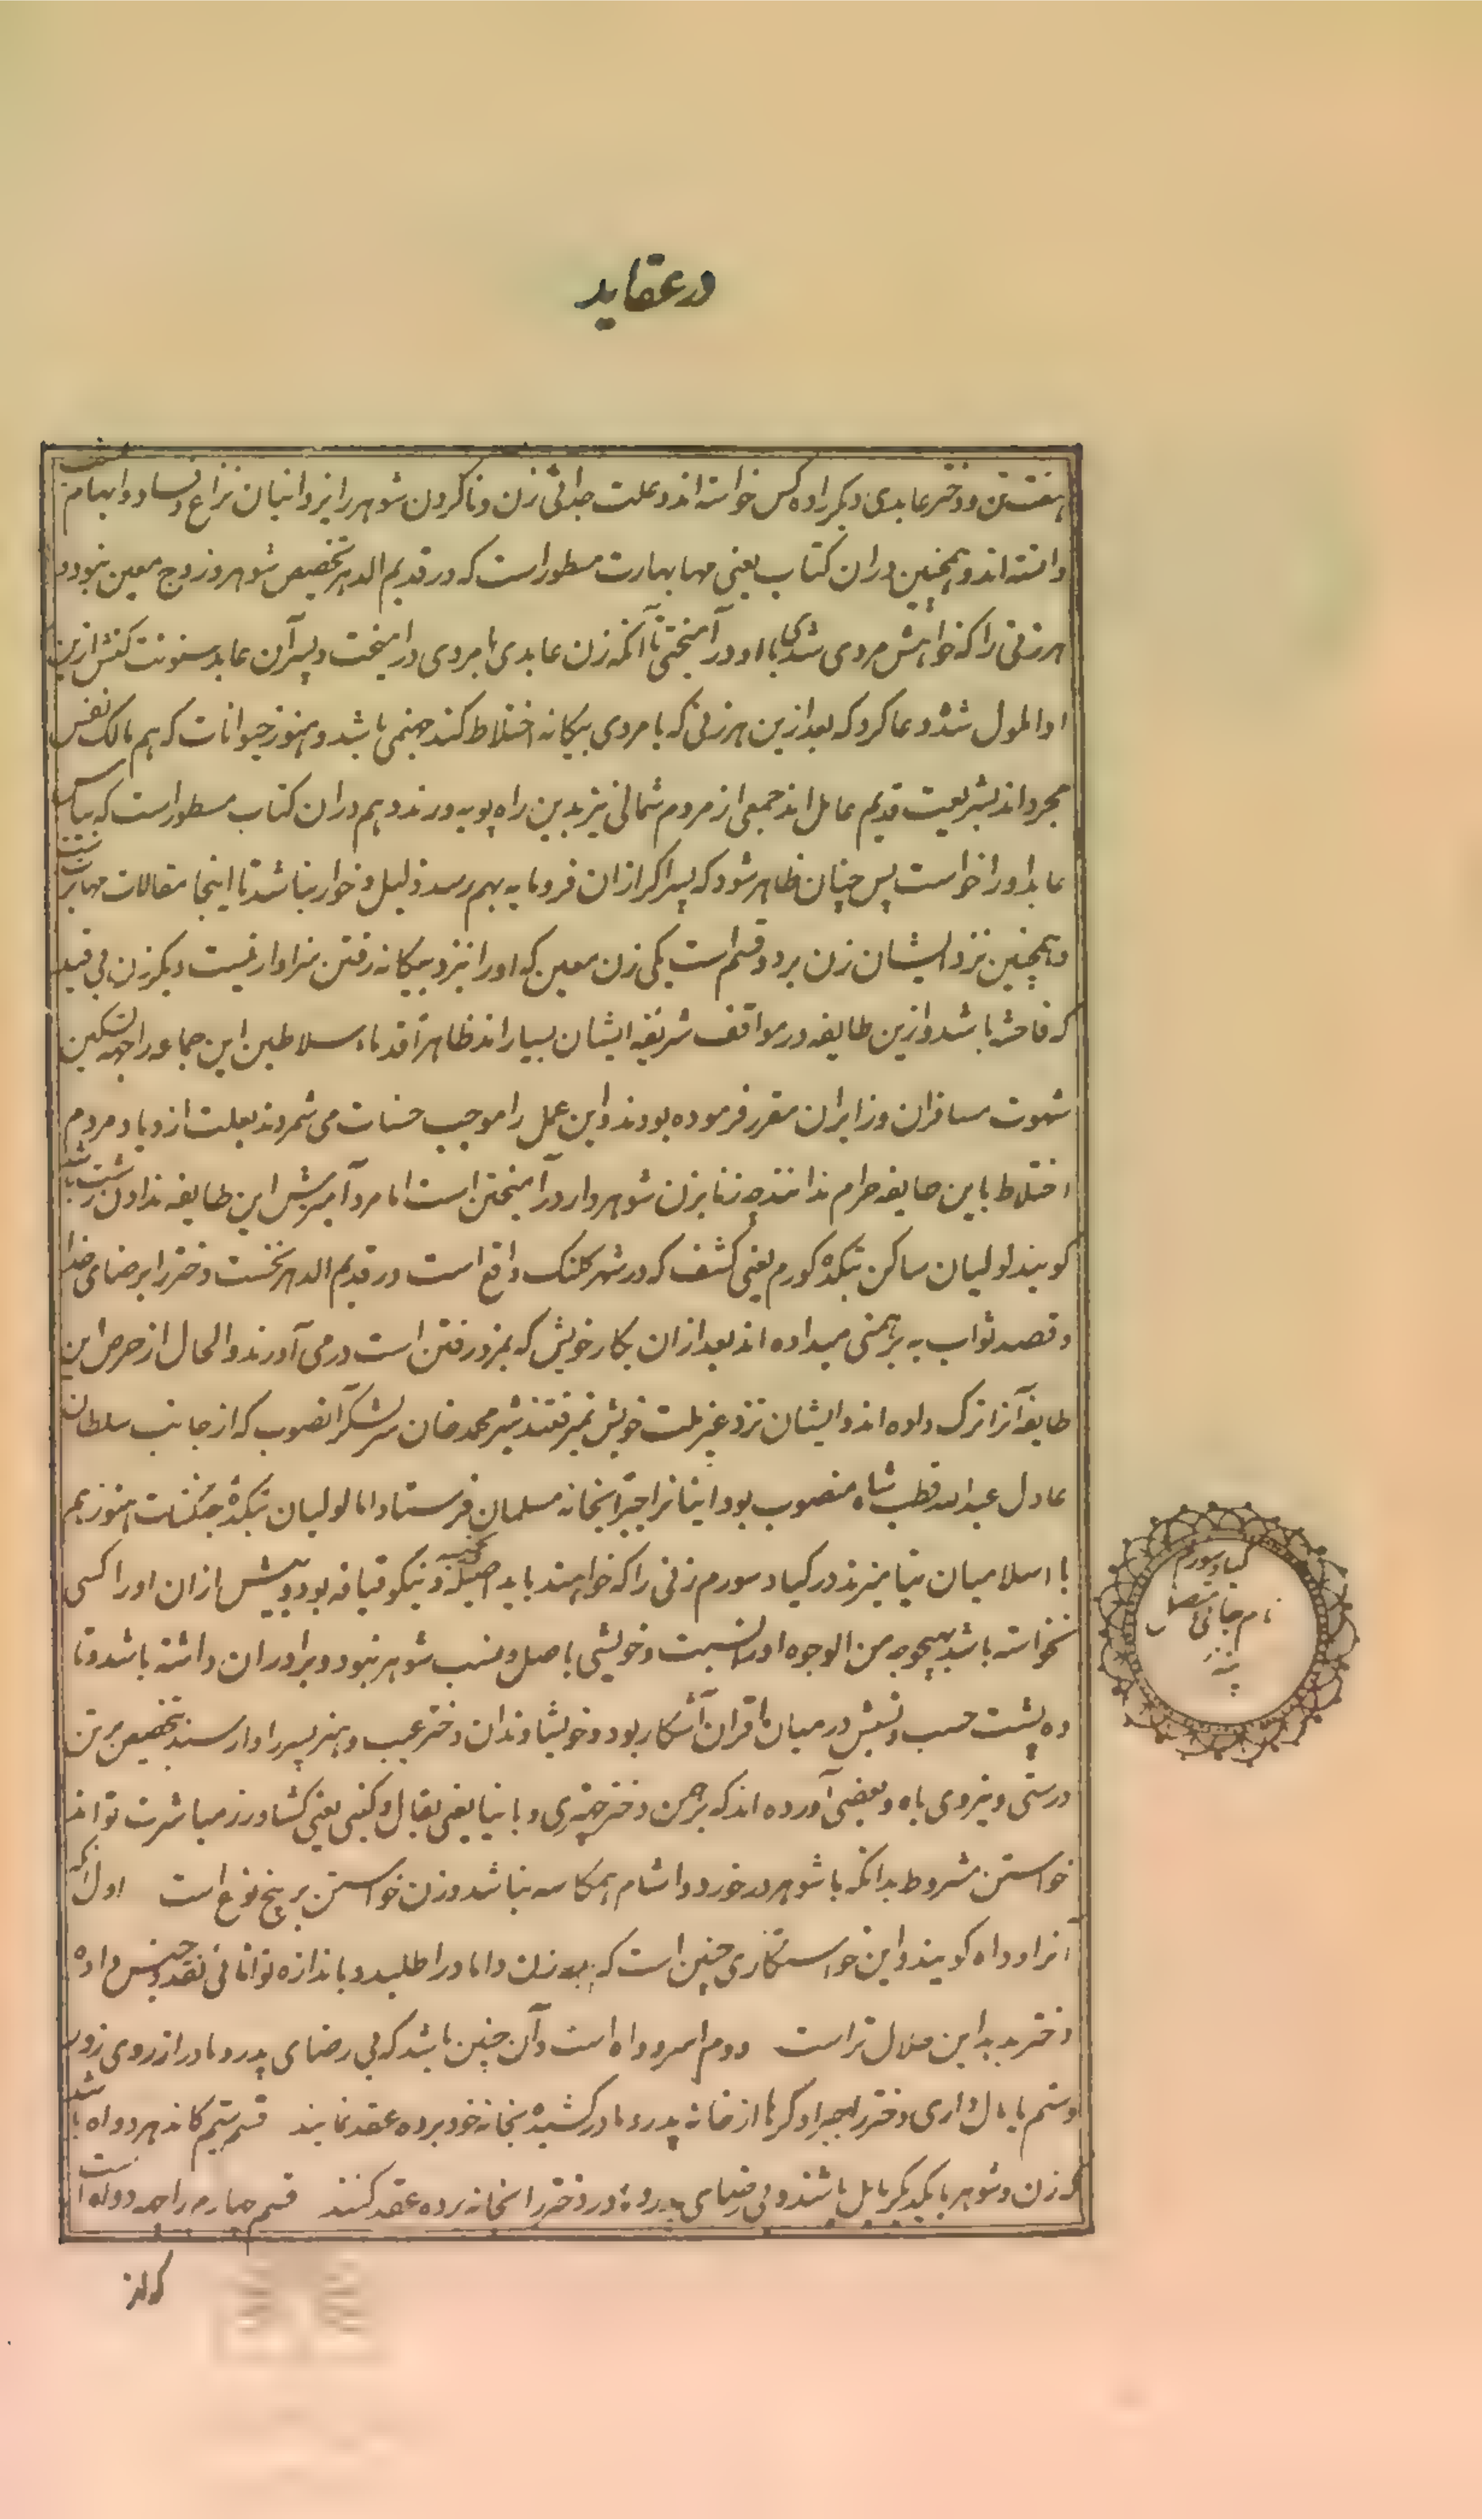 در عقاید
هفت تن و دختر عابدی دیگر را ده کس خواسته اند و علت جدائی زن و ناکردن شوهر را یزدانیان نزاع و فساد و ابهام
دانسته اند و همچنین در ان کتاب یعنی مهابهارت مسطور است که در قدیم الدهر تخصیص شوهر و زوج معین نبود و
هر زنی را که خواهش مردی شدی با او در آمیختی تا آنکه زن عابدی با مردی در امیخت و پسر آن عابد سنونت کنش ازین
ادا ملول شد و دعا کرد که بعد ازین هر زنی که با مردی بیکانه اختلاط کند جهنمی باشد و هنوز حیوانات که هم مالک نفس
مجرد اند بشریعت قدیم عامل اند جمعی از مردم شمالی نیز بدین راه پویه ورند و هم دران کتاب مسطور است که بیاس
عابد او را خواست پس چنان ظاهر شود که پسر اکر ازان فرومایه بهم رسد ذلیل و خوار نباشد تا اینجا مقالات مهابهارت
و همچنین نزد ایشان زن بر دو قسم است یکی زن معین که او را نزد بیکانه رفتن سزاوار نیست دیگر زن بی قید
که فاحشه باشد و ازین طایفه در مواقف شریفه ایشان بسیار اند ظاهرا قدماء سلاطین این جماعه را جهة تسکین
شهوت مسافران و زایران مقرر فرموده بودند و این عمل را موجب حسنات می شمردند بعلت ازدیاد مردم
اختلاط باین طایفه حرام ندانند چه زنا بزن شوهردار در آمیختن است اما مرد آمیزش این طایفه ندادن زشت باشد
کویند لولیان ساکن بتکده کورم یعنی کشف که در شهر کلنک واقع است در قدیم الدهر نخست دختر را برضای خدا
و قصد ثواب به برهمنی میداده اند بعد ازان بکار خویش که بمزد رفتن است در می آورند و الحال از حرص این
طایفه آنرا ترک داده اند و ایشان نزد غیر ملت خویش نمیرفتند شیر محمد خان سرلشکر آنصوب که از جانب سلطان
عادل عبدالله قطب شاه منصوب بود اینانرا جبرا بخانه مسلمان فرستاد اما لولیان بتکده جکنات هنوز هم
با اسلامیان نیامیزند در کیاد سورم زنی را که خواهند باید اصیله و نیکو قیافه بود و پیش ازان او را کسی
نخواسته باشد بهیچوجه من الوجوه او را نسبت و خویشی باصل و نسب شوهر نبود و برادران داشته باشد و تا
ده پشت حسب و نسبش در میان اقران آشکار بود و خویشاوندان دختر عیب و هنر پسر را وارسند بتخصیص بر تن
درستی و نیروی باه و بعضی آورده اند که برهمن دختر چهتری و بانیا یعنی بقال و کنبی یعنی کشاورز مباشرت تواند
خواستن مشروط بدانکه با شوهر در خورد و اشام همکاسه نباشد و زن خواستن بر پنج نوع است اول انکه
آنرا وداه کویند و این خواستکاری چنین است که پدر زن داماد را طلبیده باندازه توانائی نقد و جنس داده
دختر بدهد این حلال تر است دوم اسر وداه است و آن چنین باشد که بی رضای پدر و مادر از روی زور
و ستم یا بمال داری دختر را بجبر از خانه پدر و مادر کشیده بخانه خود برده عقد نمایند قسم سیم کاندهرد واه باشد
که زن و شوهر با یکدیکر مایل باشند و بی رضای پدر و مادر دختر را بخانه برده عقد کنند قسم چهارم
کیاد سورم
نام جائی متصل
پتنه